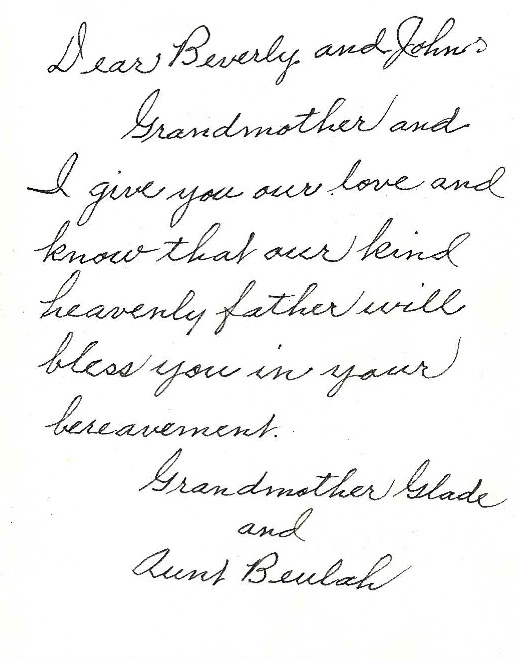 Dear Beverly and John:
Grandmother and
I give you our love and
know that our kind
heavenly father will
bless you in your
bereavement.
Grandmother Glade
and
Aunt Beulah